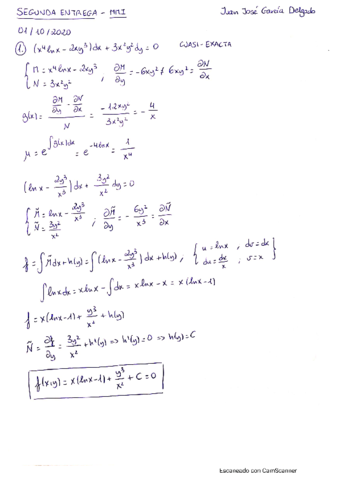 SEGUNDA ENTREGA - MMI
Juan José García Delgado
01/10/2020
1. (x⁴lnx - 2xy³)dx + 3x²y²dy = 0 CUASI-EXACTA
{ M = x⁴lnx - 2xy³ ; ∂M/∂y = -6xy² ≠ 6xy² = ∂N/∂x
{ N = 3x²y²
g(x) = (∂M/∂y - ∂N/∂x)/N = -12xy²/3x²y² = -4/x
μ = e^∫g(x)dx = e^-4lnx = 1/x⁴
(lnx - 2y³/x³)dx + 3y²/x² dy = 0
{ M̃ = lnx - 2y³/x³ ; ∂M̃/∂y = -6y²/x³ = ∂Ñ/∂x
{ Ñ = 3y²/x²
f = ∫M̃dx + h(y) = ∫(lnx - 2y³/x³)dx + h(y), { u = lnx , dv = dx }
{ du = dx/x , v = x }
∫lnxdx = xlnx - ∫dx = xlnx - x = x(lnx-1)
f = x(lnx-1) + y³/x² + h(y)
Ñ = ∂f/∂y = 3y²/x² + h'(y) => h'(y) = 0 => h(y) = C
f(x,y) = x(lnx-1) + y³/x² + C = 0
Escaneado con CamScanner